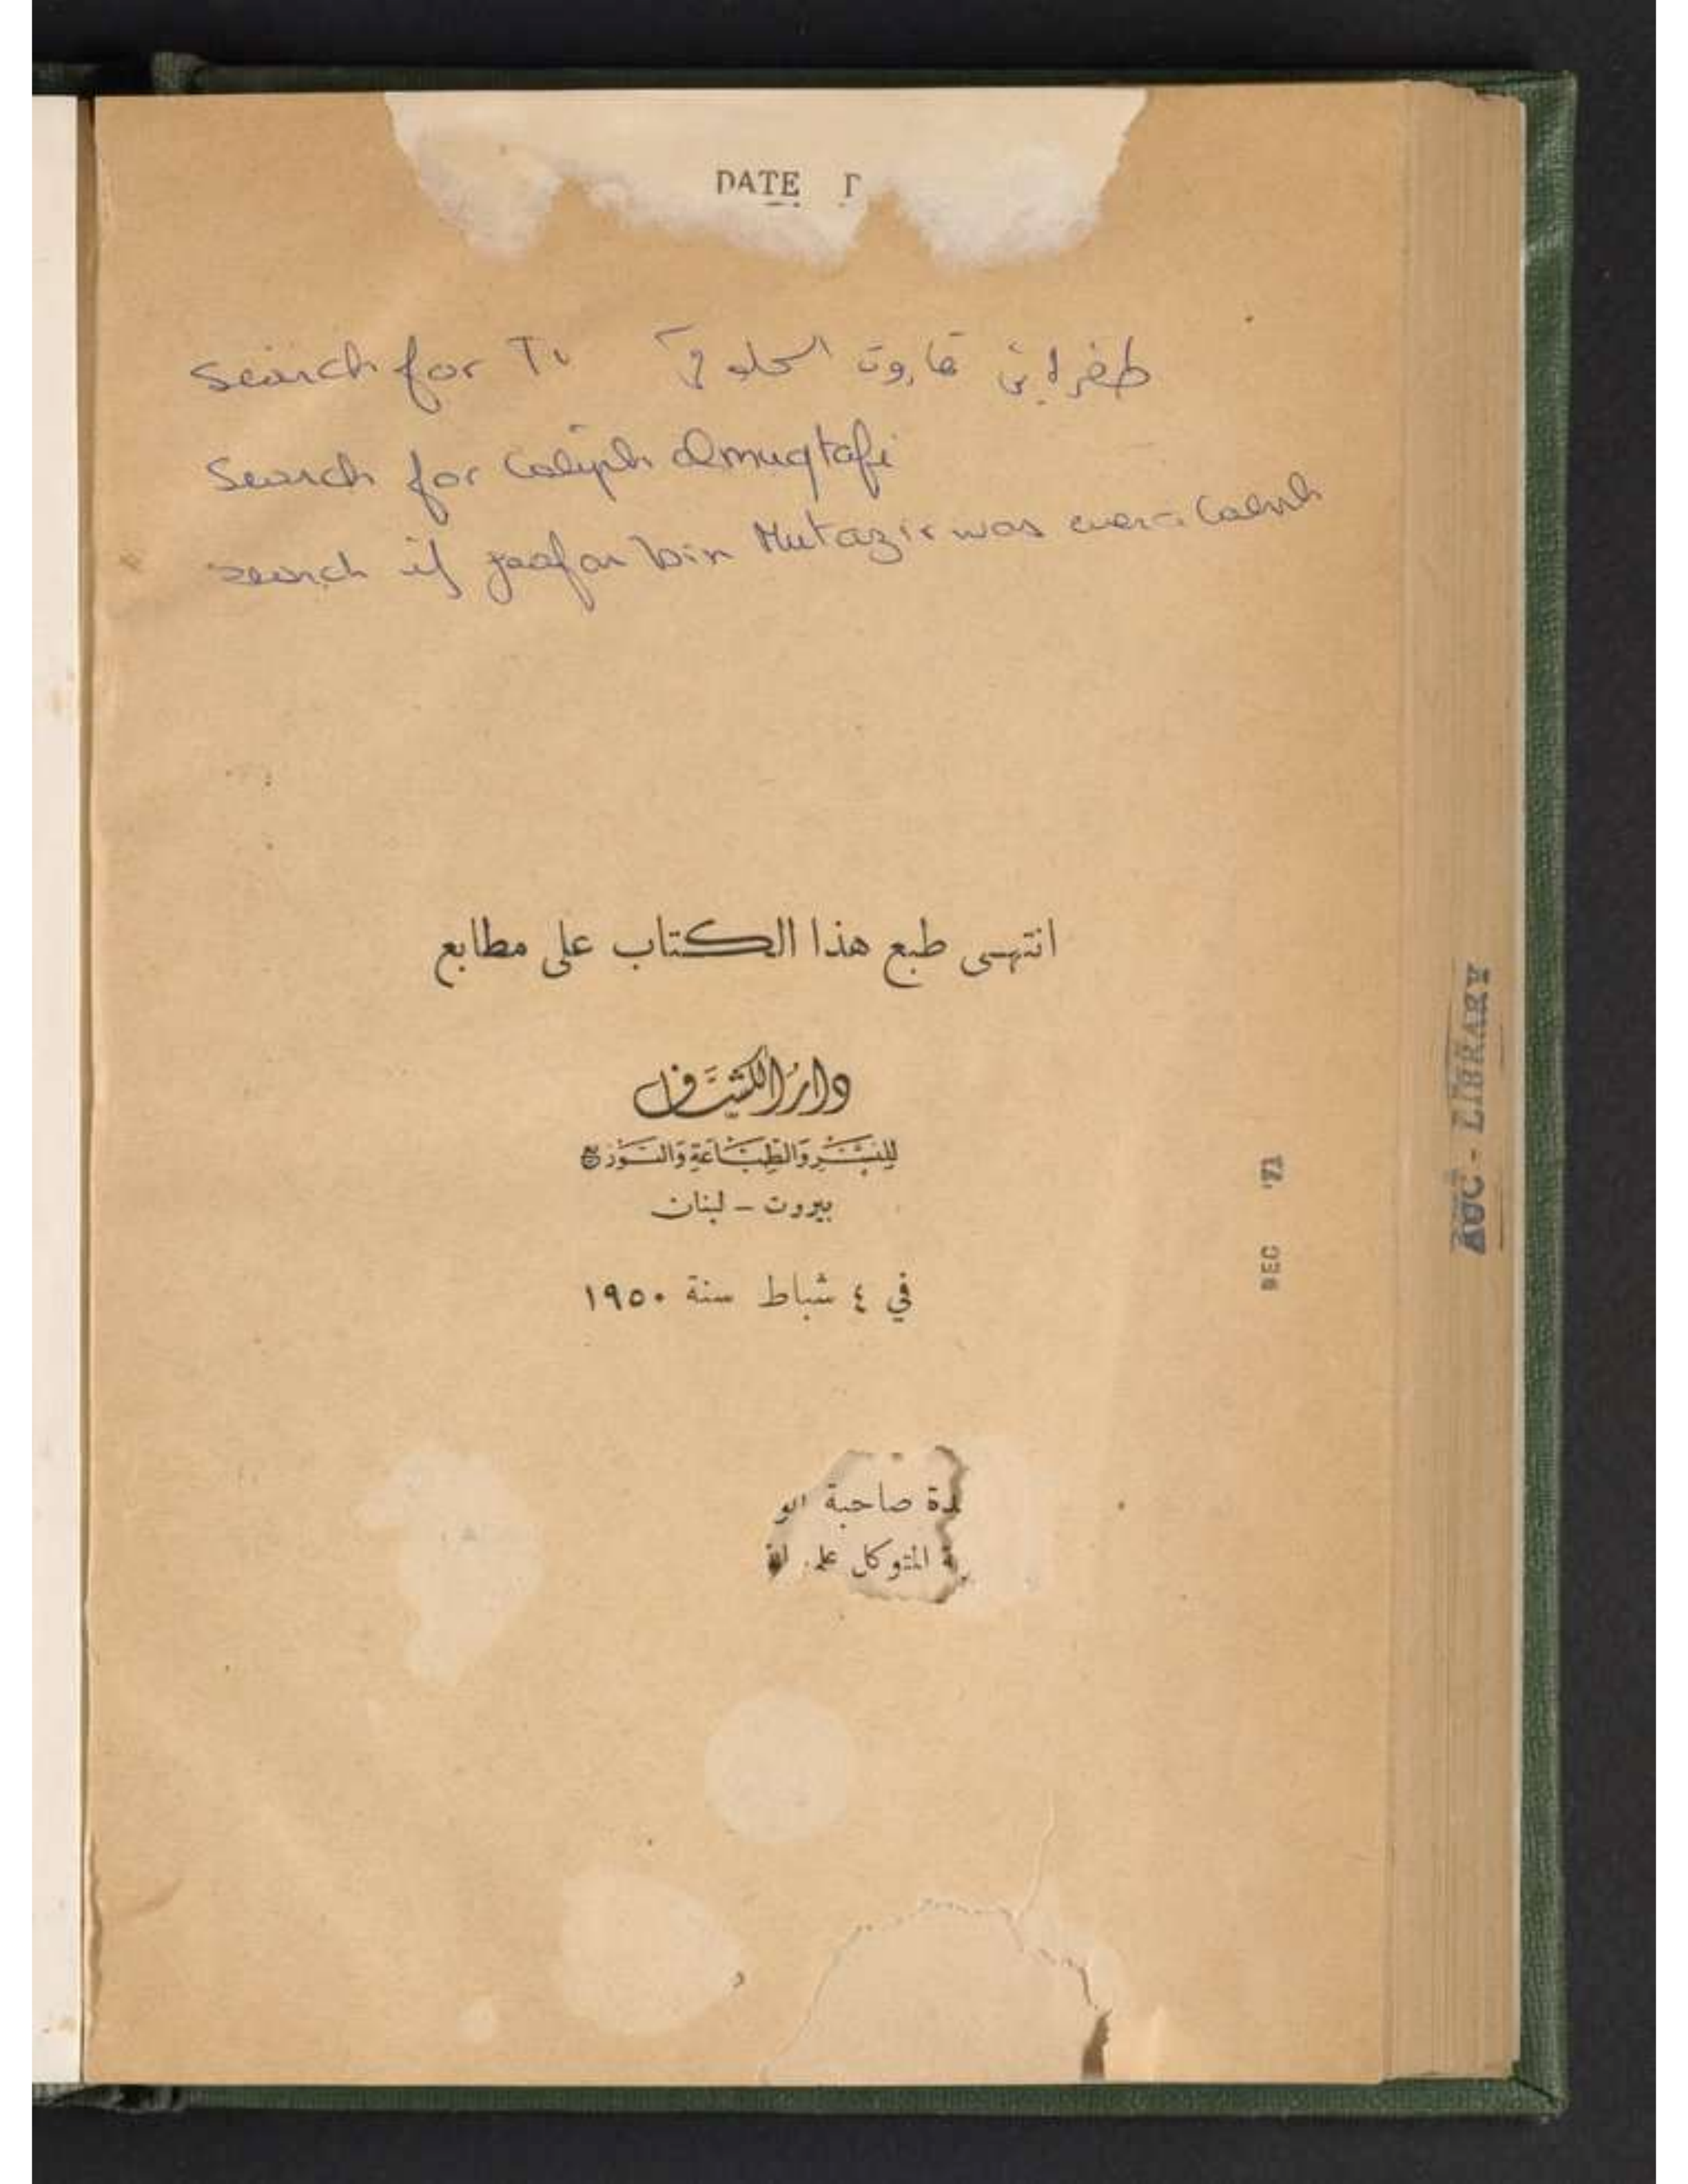 DATE
Search for
Search for Caliph Almuqtafi
search if Jaafar bin Mutazir was ever a
انتهى طبع هذا الكتاب على مطابع
دار الكشاف
للنشر والطباعة والتوزيع
بيروت - لبنان
في ٤ شباط سنة ١٩٥٠
صاحبة
المتوكل
DEC '71
AUC - LIBRARY